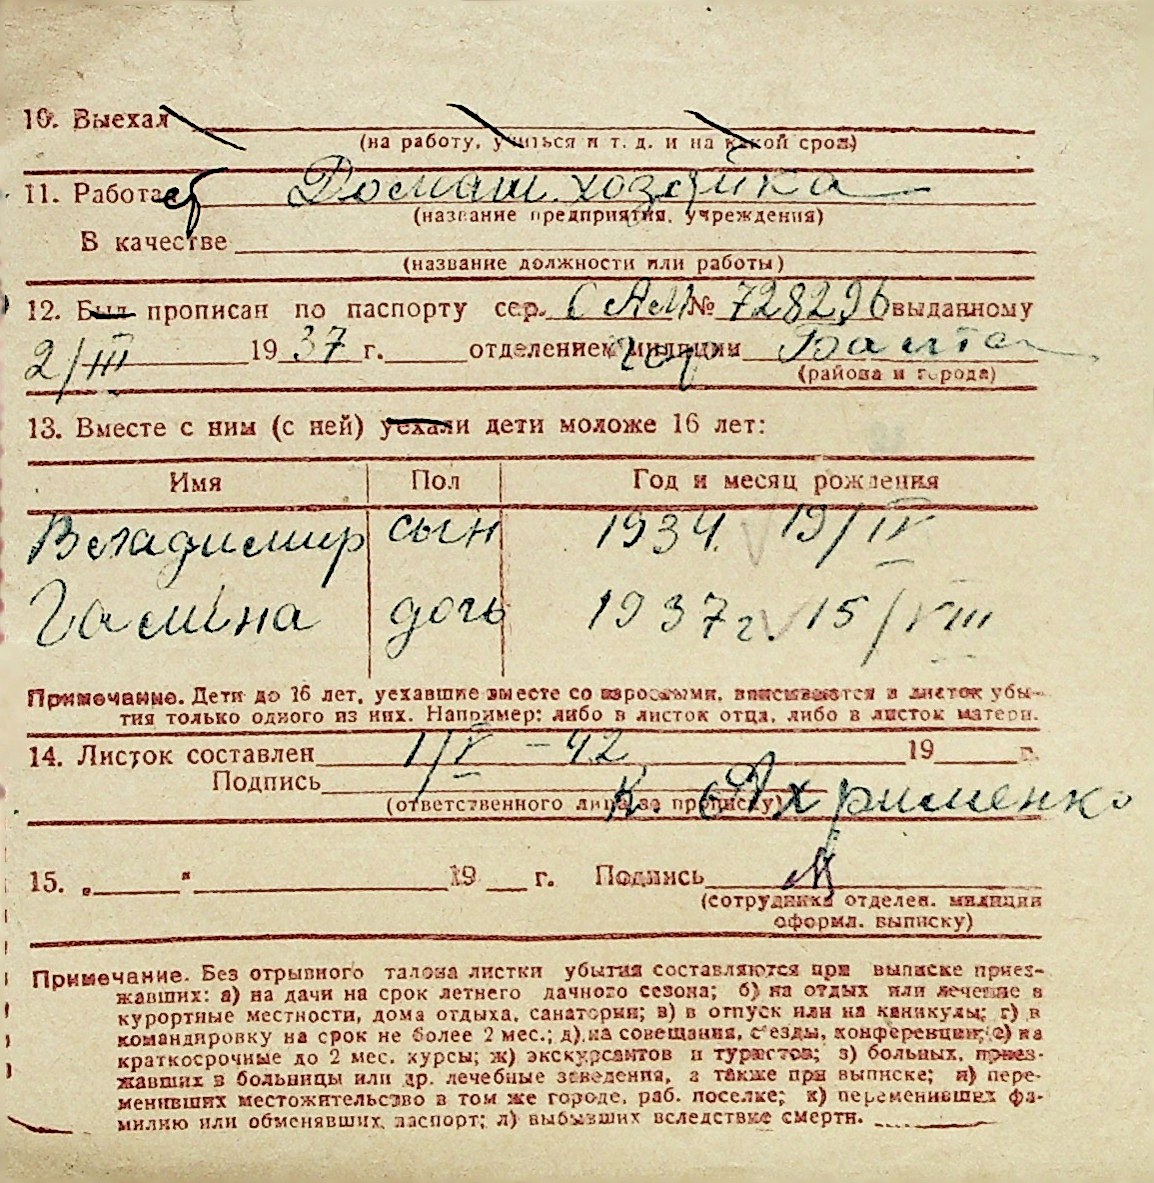 10. Выехал
(на работу, учиться и т. д. и на какой срок)
11. Работает Домаш. хозяйка
(название предприятия, учреждения)
В качестве
(название должности или работы)
12. Был прописан по паспорту сер. САМ № 728296 выданному
2/III 1937 г. отделением милиции гор. Балта
(района и города)
13. Вместе с ним (с ней) уехали дети моложе 16 лет:
Имя Пол Год и месяц рождения
Владимир сын 1934. 19/IV
Галина дочь 1937г. 15/VIII
Примечание. Дети до 16 лет, уехавшие вместе со взрослыми, вписываются в листок убы-
тия только одного из них. Например: либо в листок отца, либо в листок матери.
14. Листок составлен 1/V - 42 19 г.
Подпись К. Ахрименко
(ответственного лица за прописку)
15. „ " 19 г. Подпись
(сотрудника отделен. милиции
оформл. выписку)
Примечание. Без отрывного талона листки убытия составляются при выписке приез-
жавших: а) на дачи на срок летнего дачного сезона; б) на отдых или лечение в
курортные местности, дома отдыха, санатории; в) в отпуск или на каникулы; г) в
командировку на срок не более 2 мес.; д) на совещания, с'езды, конференции; е) на
краткосрочные до 2 мес. курсы; ж) экскурсантов и туристов; з) больных, приез-
жавших в больницы или др. лечебные заведения, а также при выписке; и) пере-
менивших местожительство в том же городе, раб. поселке; к) переменивших фа-
милию или обменявших паспорт; л) выбывших вследствие смерти.